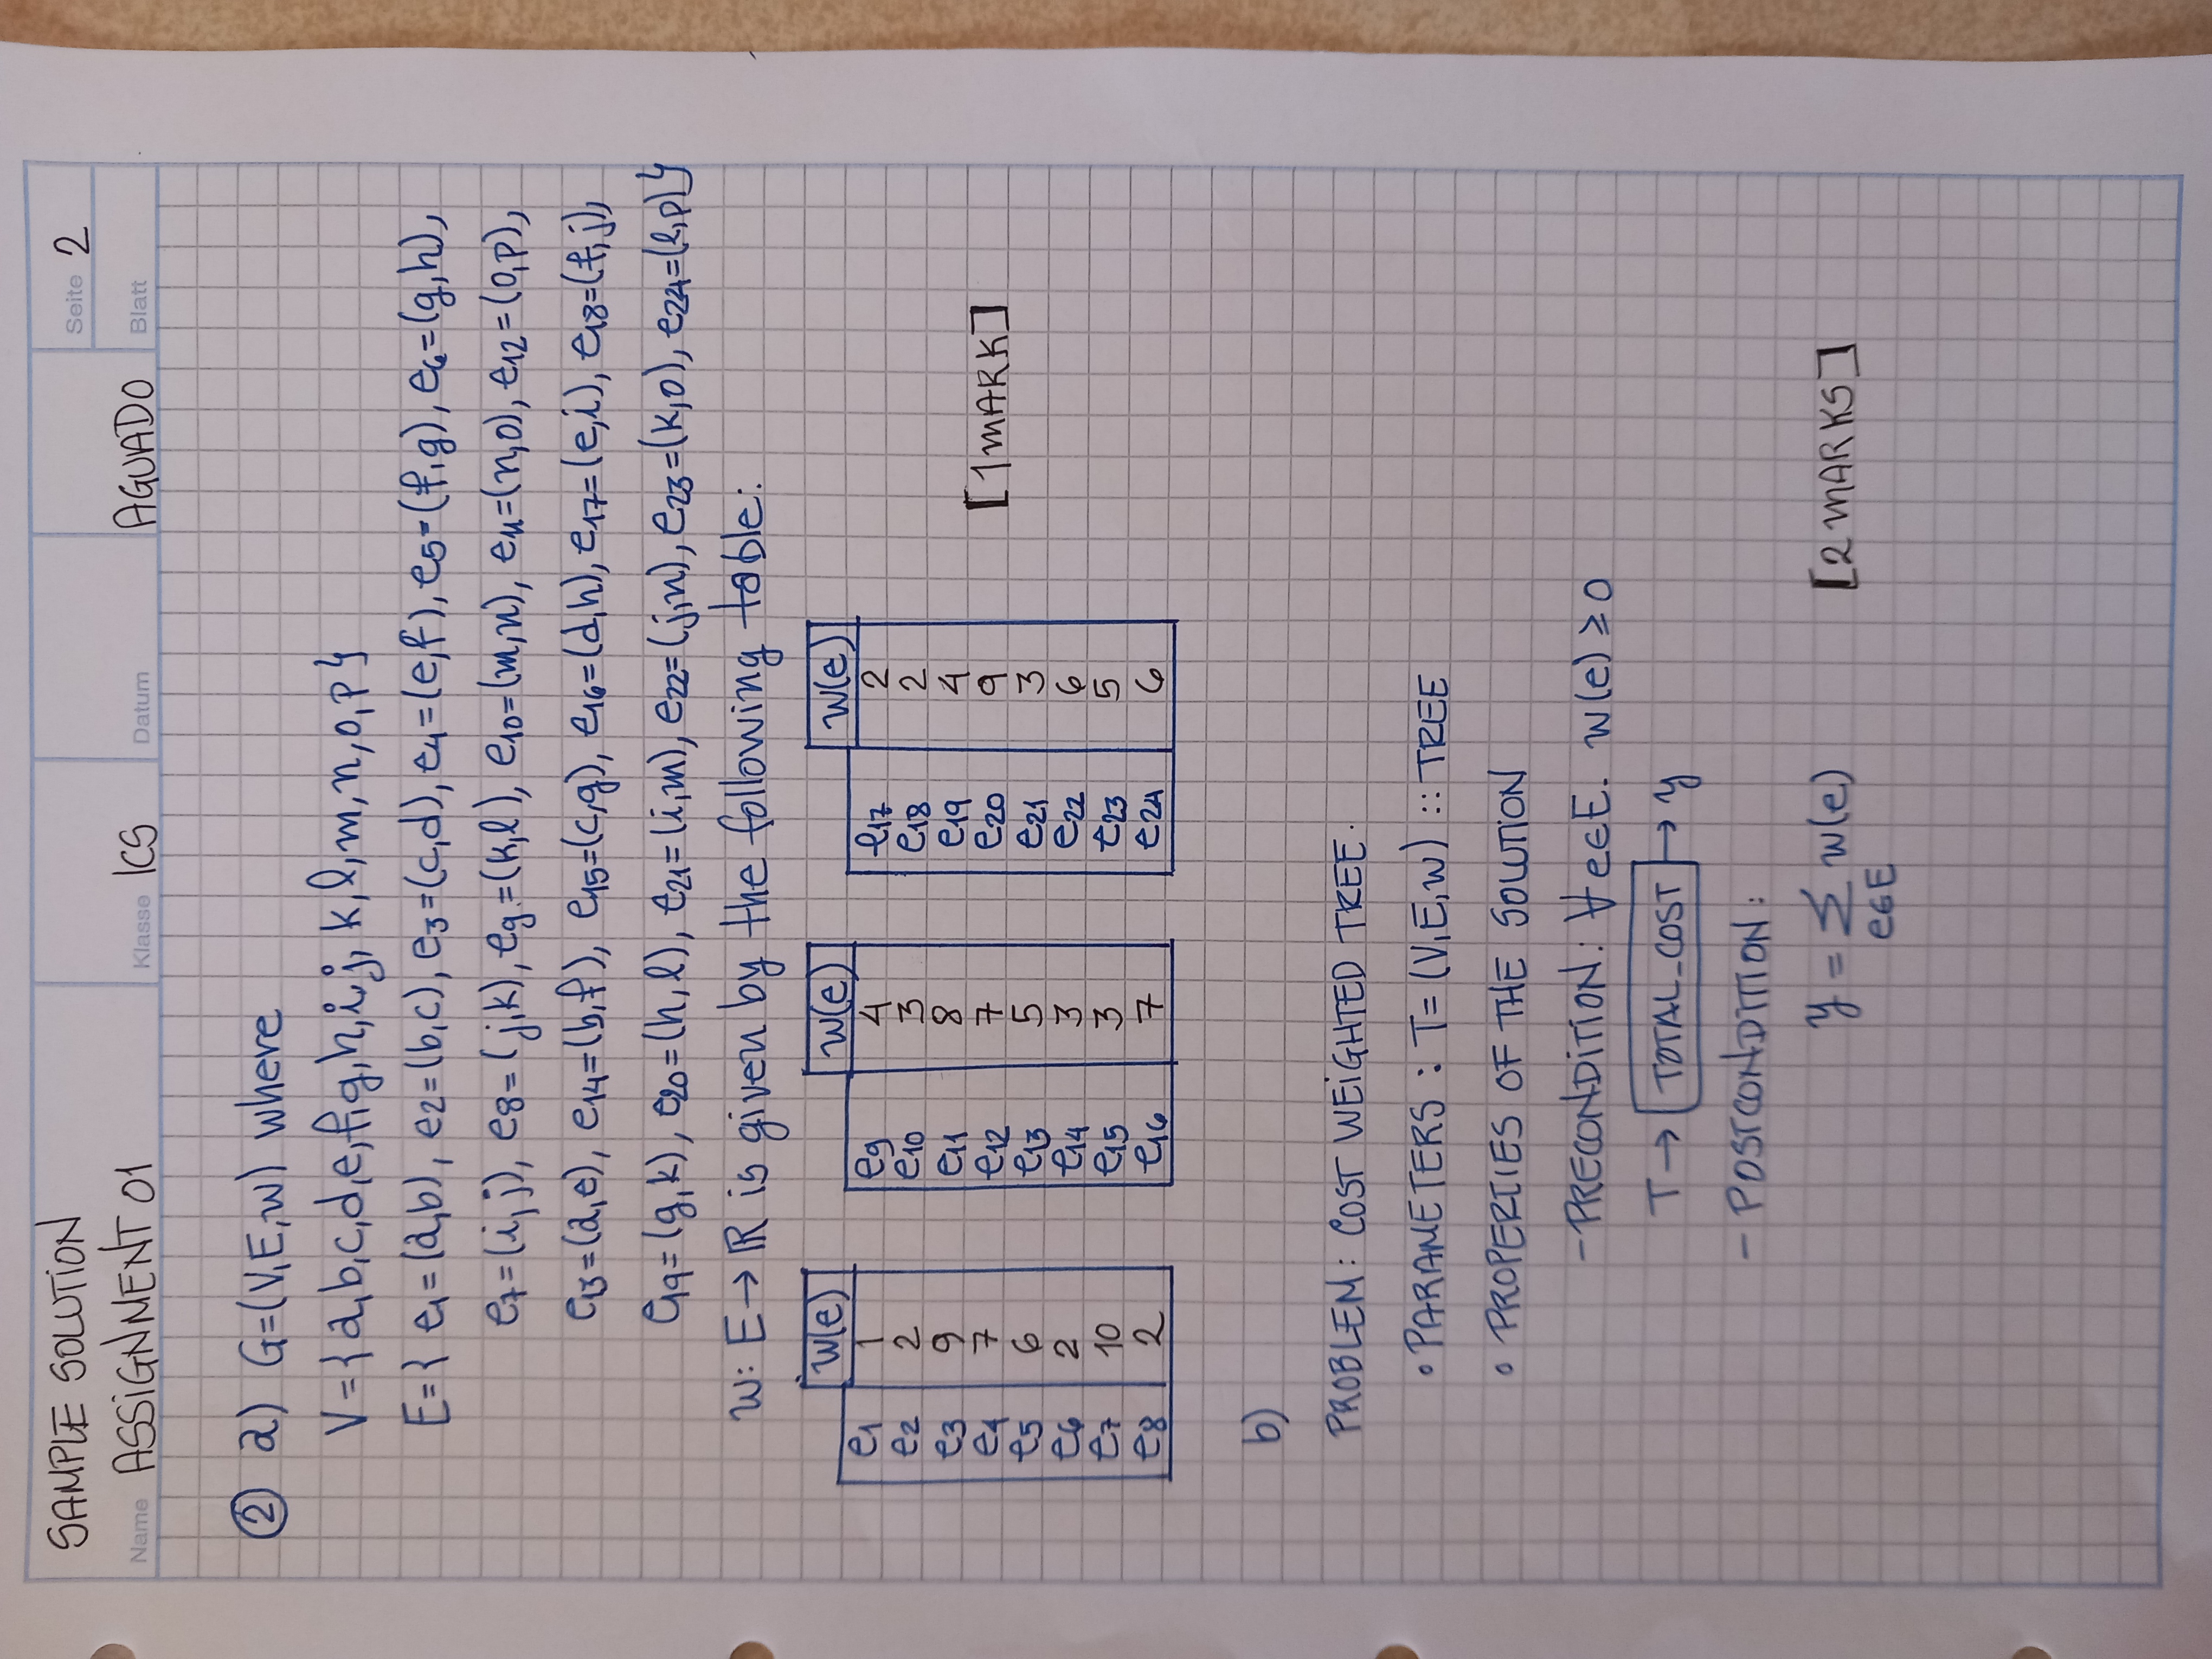 SAMPLE SOLUTION
Name ASSIGNMENT 01 Klasse ICS Datum AGUADO Seite 2
Blatt
② a) G=(V,E,w) where
V={a,b,c,d,e,f,g,h,i,j,k,l,m,n,o,p}
E={ e1=(a,b), e2=(b,c), e3=(c,d), e4=(e,f), e5=(f,g), e6=(g,h),
e7=(i,j), e8=(j,k), e9=(k,l), e10=(m,n), e11=(n,o), e12=(o,p),
e13=(a,e), e14=(b,f), e15=(c,g), e16=(d,h), e17=(e,i), e18=(f,j),
e19=(g,k), e20=(h,l), e21=(i,m), e22=(j,n), e23=(k,o), e24=(l,p)}
w: E→ℝ is given by the following table:
w(e) w(e) w(e)
e1 1 e9 4 e17 2
e2 2 e10 3 e18 2
e3 9 e11 8 e19 4
e4 7 e12 7 e20 9 [1 MARK]
e5 6 e13 5 e21 3
e6 2 e14 3 e22 6
e7 10 e15 3 e23 5
e8 2 e16 7 e24 6
b)
PROBLEM: COST WEIGHTED TREE.
• PARAMETERS : T= (V,E,w) :: TREE
• PROPERTIES OF THE SOLUTION
- PRECONDITION: ∀e∈E. w(e) ≥ 0
T → TOTAL_COST → y
- POSTCONDITION:
y = Σ w(e) [2 MARKS]
e∈E